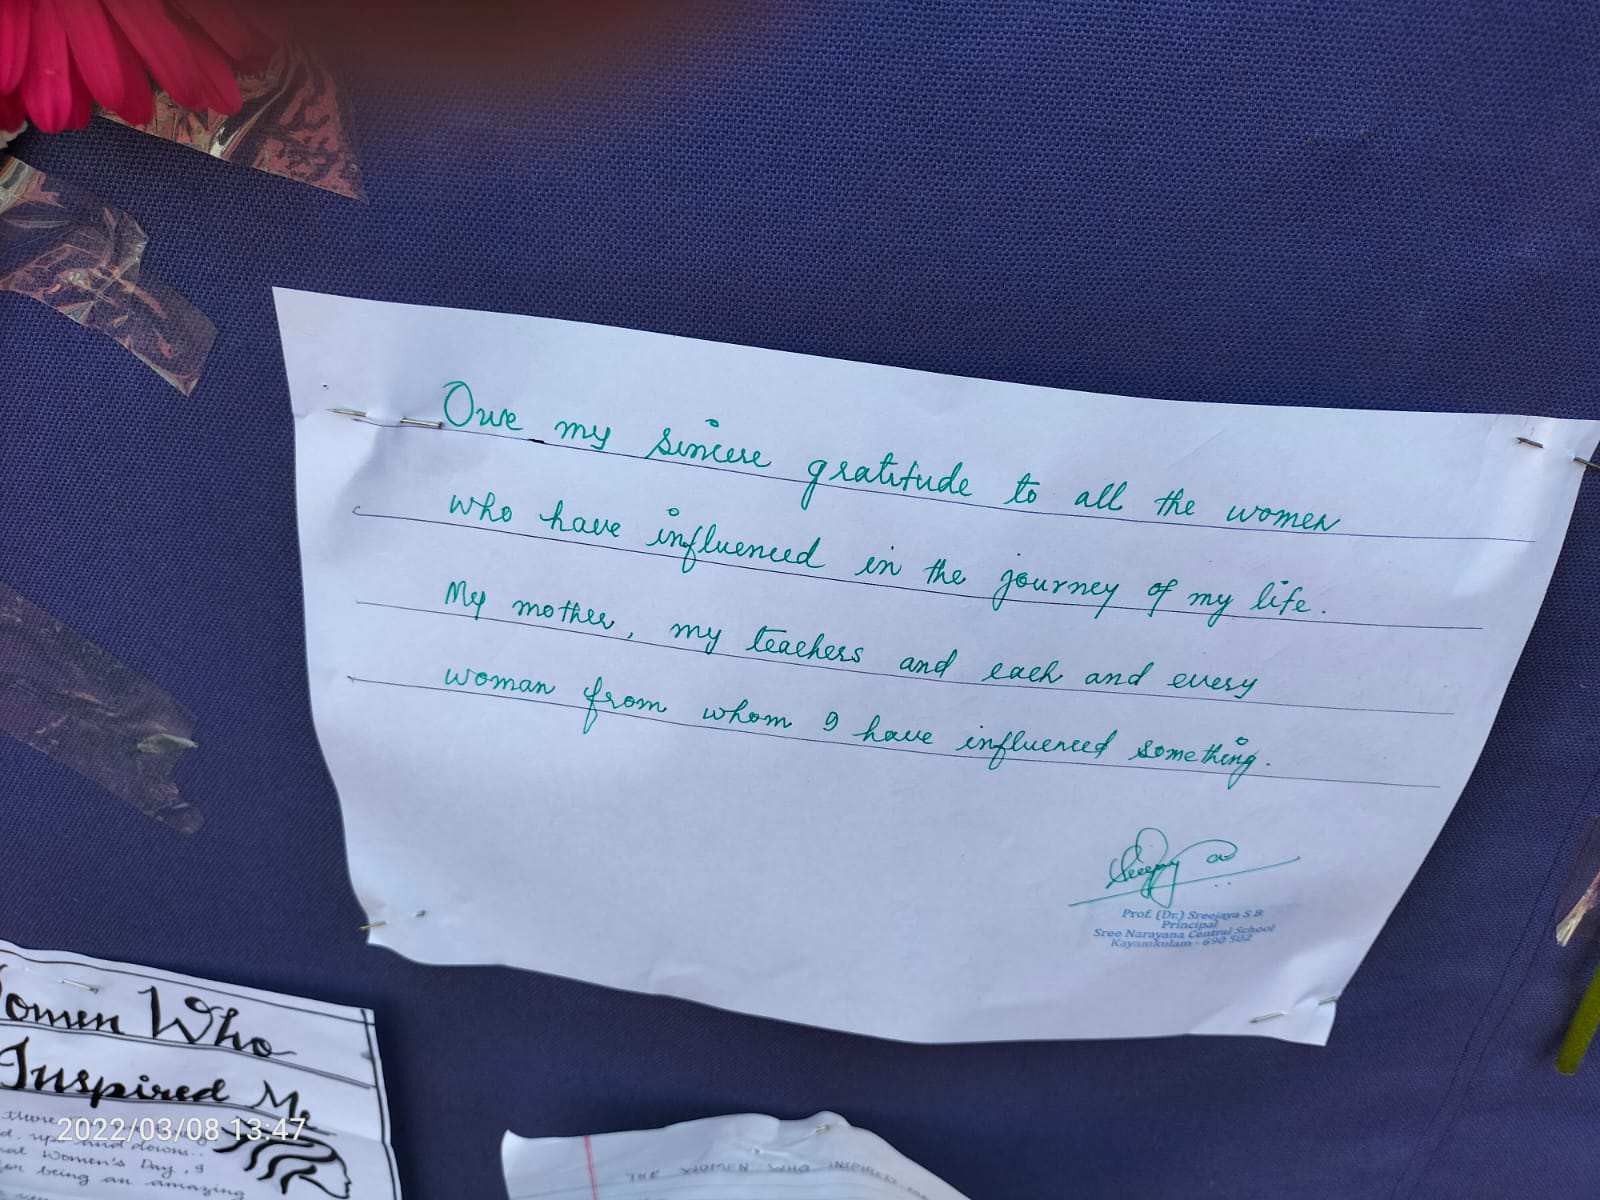 Owe my sincere gratitude to all the women
who have influenced in the journey of my life.
My mother, my teachers and each and every
woman from whom I have influenced something.
Prof. (Dr.) Sreejaya S B
Principal
Sree Narayana Central School
Kayamkulam - 690 502
omen Who
Inspired Me
and downs..
Women's Day, I
being an amazing
2022/03/08 13:47
THE WOMEN WHO INSPIRED